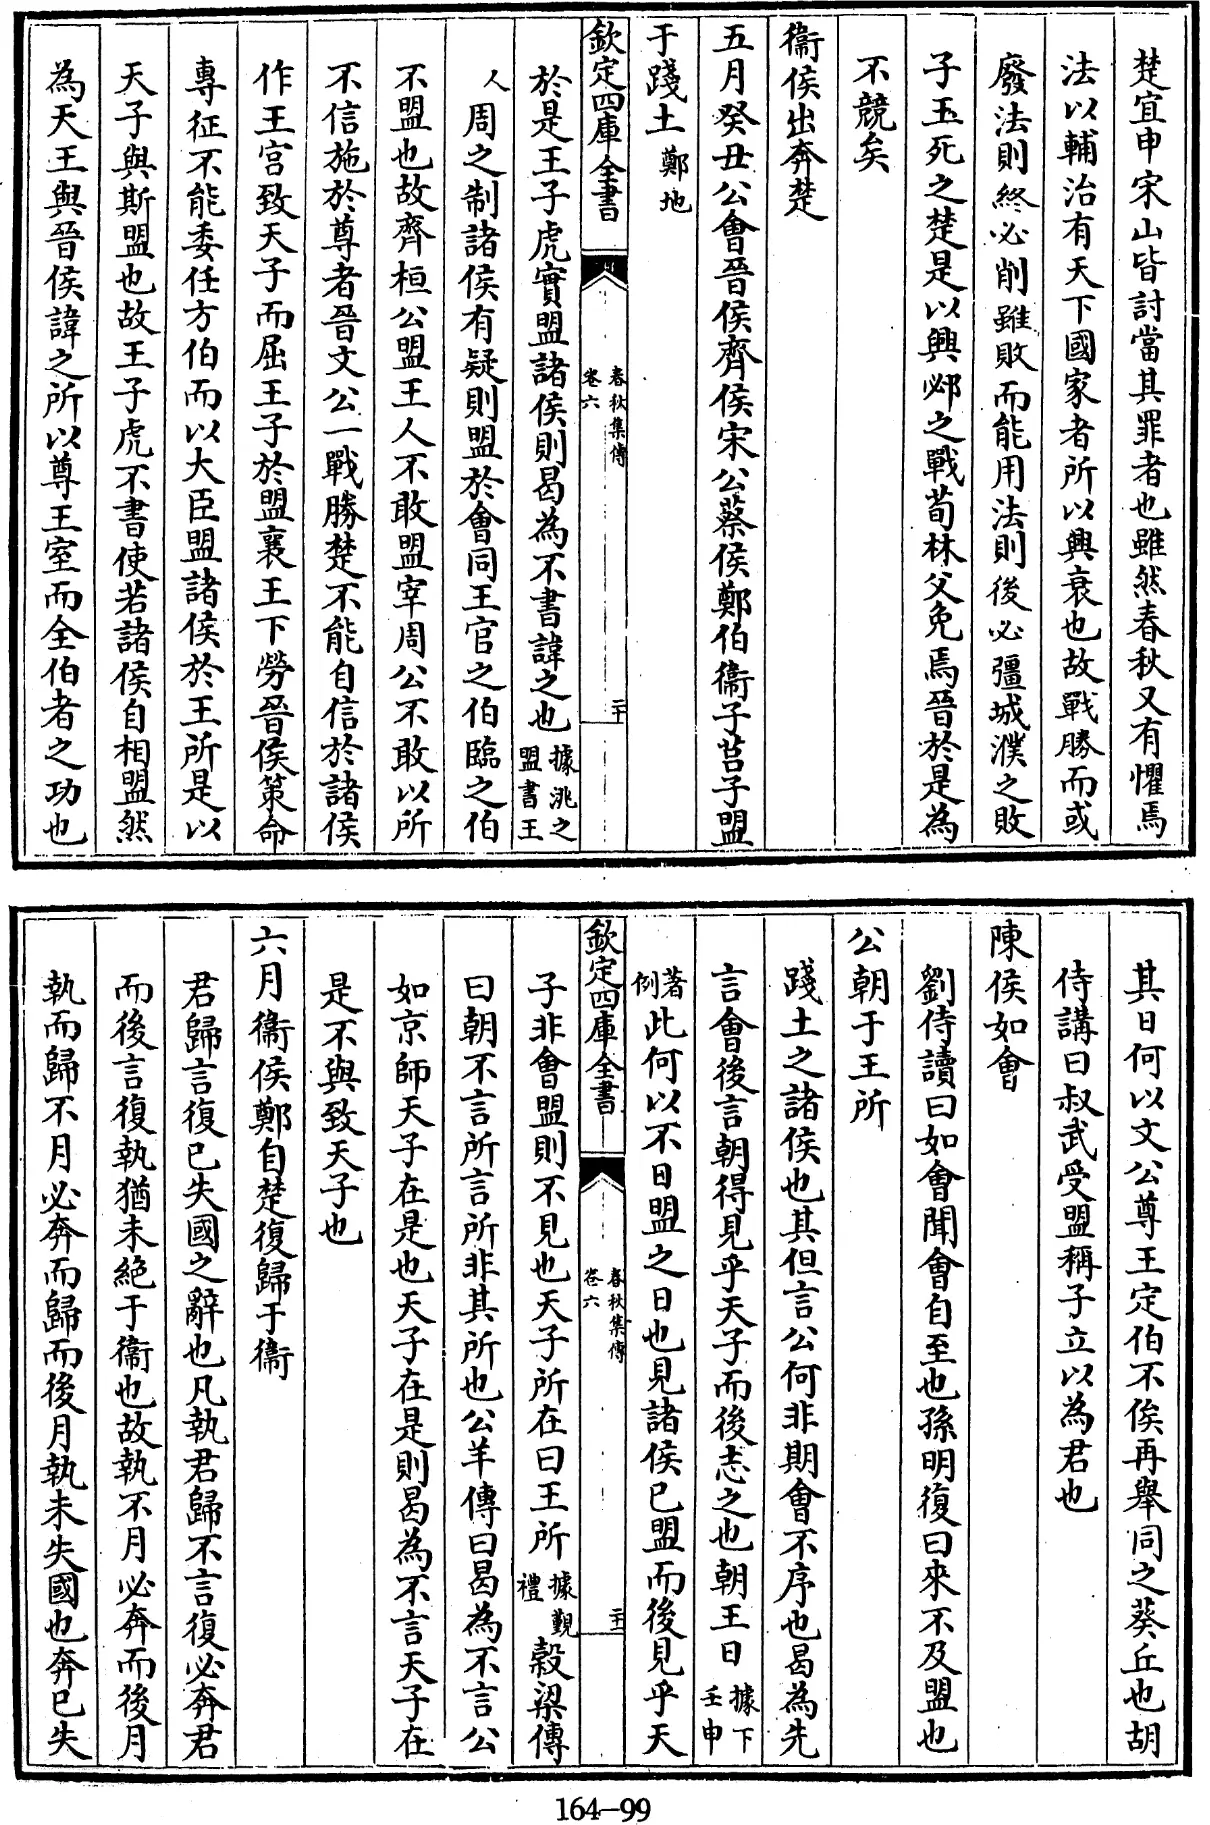 楚宜申宋山皆討當其罪者也雖然春秋又有懼焉
法以輔治有天下國家者所以興衰也故戰勝而或
廢法則終必削雖敗而能用法則後必彊城濮之敗
子玉死之楚是以興邲之戰荀林父免焉晉於是為
不競矣
衞侯出奔楚
五月癸丑公會晉侯齊侯宋公蔡侯鄭伯衞子莒子盟
于踐土鄭地
欽定四庫全書
春秋集傳
卷六
二十
於是王子虎實盟諸侯則曷為不書諱之也據洮之盟書王
人周之制諸侯有疑則盟於會同王官之伯臨之伯
不盟也故齊桓公盟王人不敢盟宰周公不敢以所
不信施於尊者晉文公一戰勝楚不能自信於諸侯
作王宮致天子而屈王子於盟襄王下勞晉侯策命
專征不能委任方伯而以大臣盟諸侯於王所是以
天子與斯盟也故王子虎不書使若諸侯自相盟然
為天王與晉侯諱之所以尊王室而全伯者之功也
其日何以文公尊王定伯不俟再舉同之葵丘也胡
侍講曰叔武受盟稱子立以為君也
陳侯如會
劉侍讀曰如會聞會自至也孫明復曰來不及盟也
公朝于王所
踐土之諸侯也其但言公何非期會不序也曷為先
言會後言朝得見乎天子而後志之也朝王日據下壬申
著例此何以不日盟之日也見諸侯已盟而後見乎天
欽定四庫全書
春秋集傳
卷六
二十一
子非會盟則不見也天子所在曰王所據覲禮穀梁傳
曰朝不言所言所非其所也公羊傳曰曷為不言公
如京師天子在是也天子在是則曷為不言天子在
是不與致天子也
六月衞侯鄭自楚復歸于衞
君歸言復已失國之辭也凡執君歸不言復必奔君
而後言復執猶未絕于衞也故執不月必奔而後月
執而歸不月必奔而歸而後月執未失國也奔已失
164-99